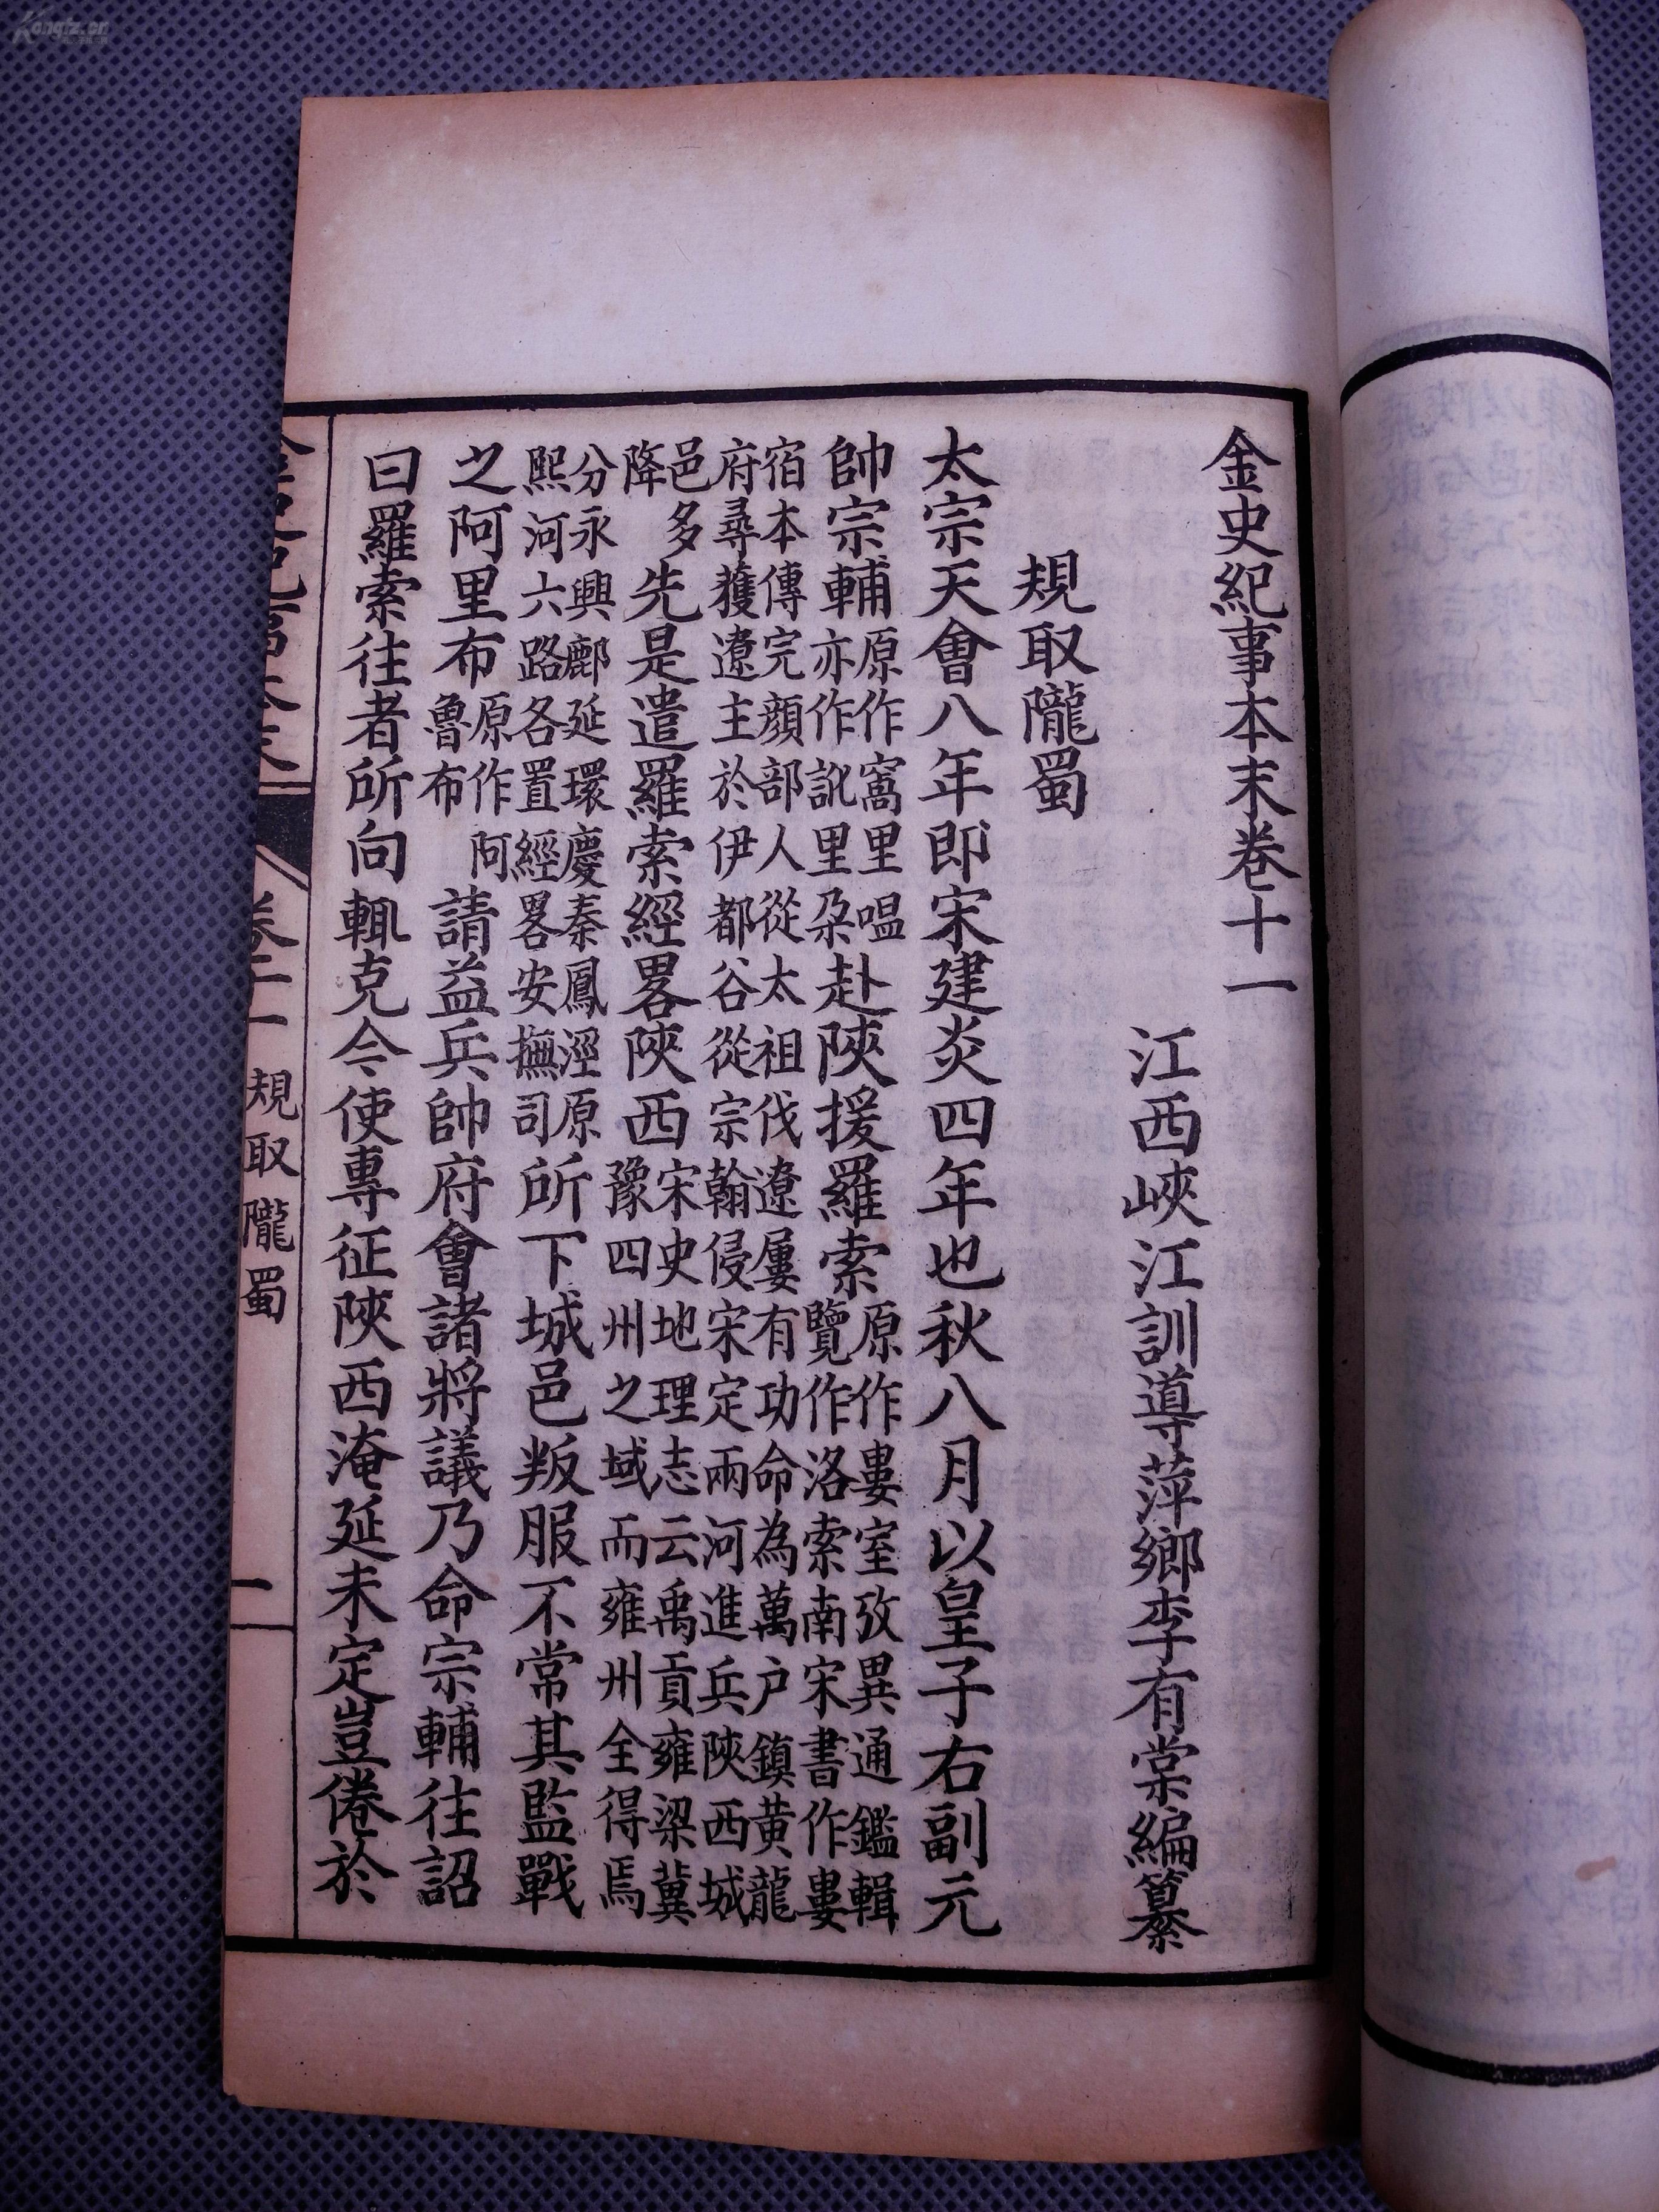 金史紀事本末卷十一
江西峽江訓導萍鄉李有棠編纂
規取隴蜀
太宗天會八年即宋建炎四年也秋八月以皇子右副元
帥宗輔原作窩里嗢亦作訛里朶赴陝援羅索原作婁室攷異通鑑輯覽作洛索南宋書作婁
宿本傳完顏部人從太祖伐遼屢有功命為萬户鎮黃龍府尋獲遼主於伊都谷從宗翰侵宋定兩河進兵陝西城
邑多降先是遣羅索經畧陝西宋史地理志云禹貢雍梁冀豫四州之域而雍州全得焉
分永興鄜延環慶秦鳳涇原熙河六路各置經畧安撫司所下城邑叛服不常其監戰
之阿里布原作阿魯布請益兵帥府會諸將議乃命宗輔往詔
曰羅索往者所向輒克今使專征陝西淹延未定豈倦於
卷十一
規取隴蜀
一